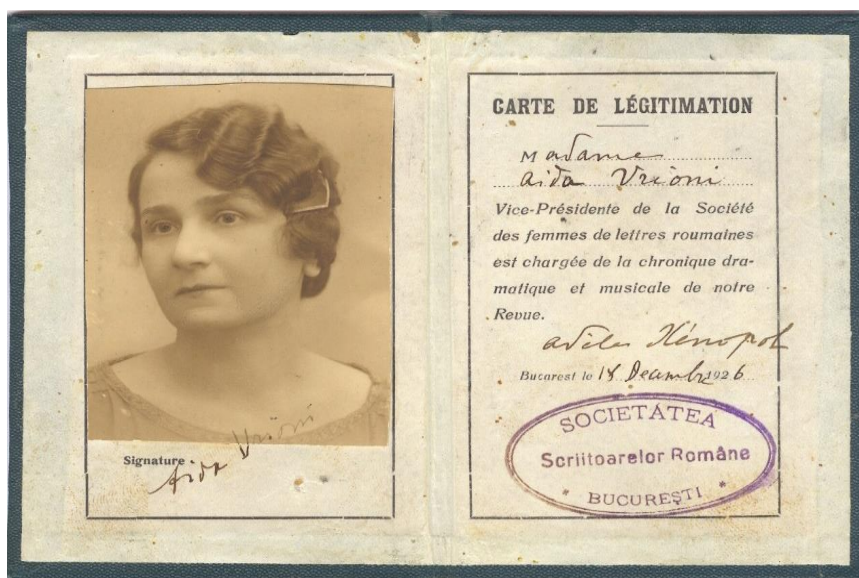 Signature
Aida Vrioni
CARTE DE LÉGITIMATION
Madame
Aida Vrioni
Vice-Présidente de la Société
des femmes de lettres roumaines
est chargée de la chronique dra-
matique et musicale de notre
Revue.
Adela Xénopol
Bucarest le 18 Decembre 1926
SOCIETATEA
Scriitoarelor Române
* BUCUREȘTI *